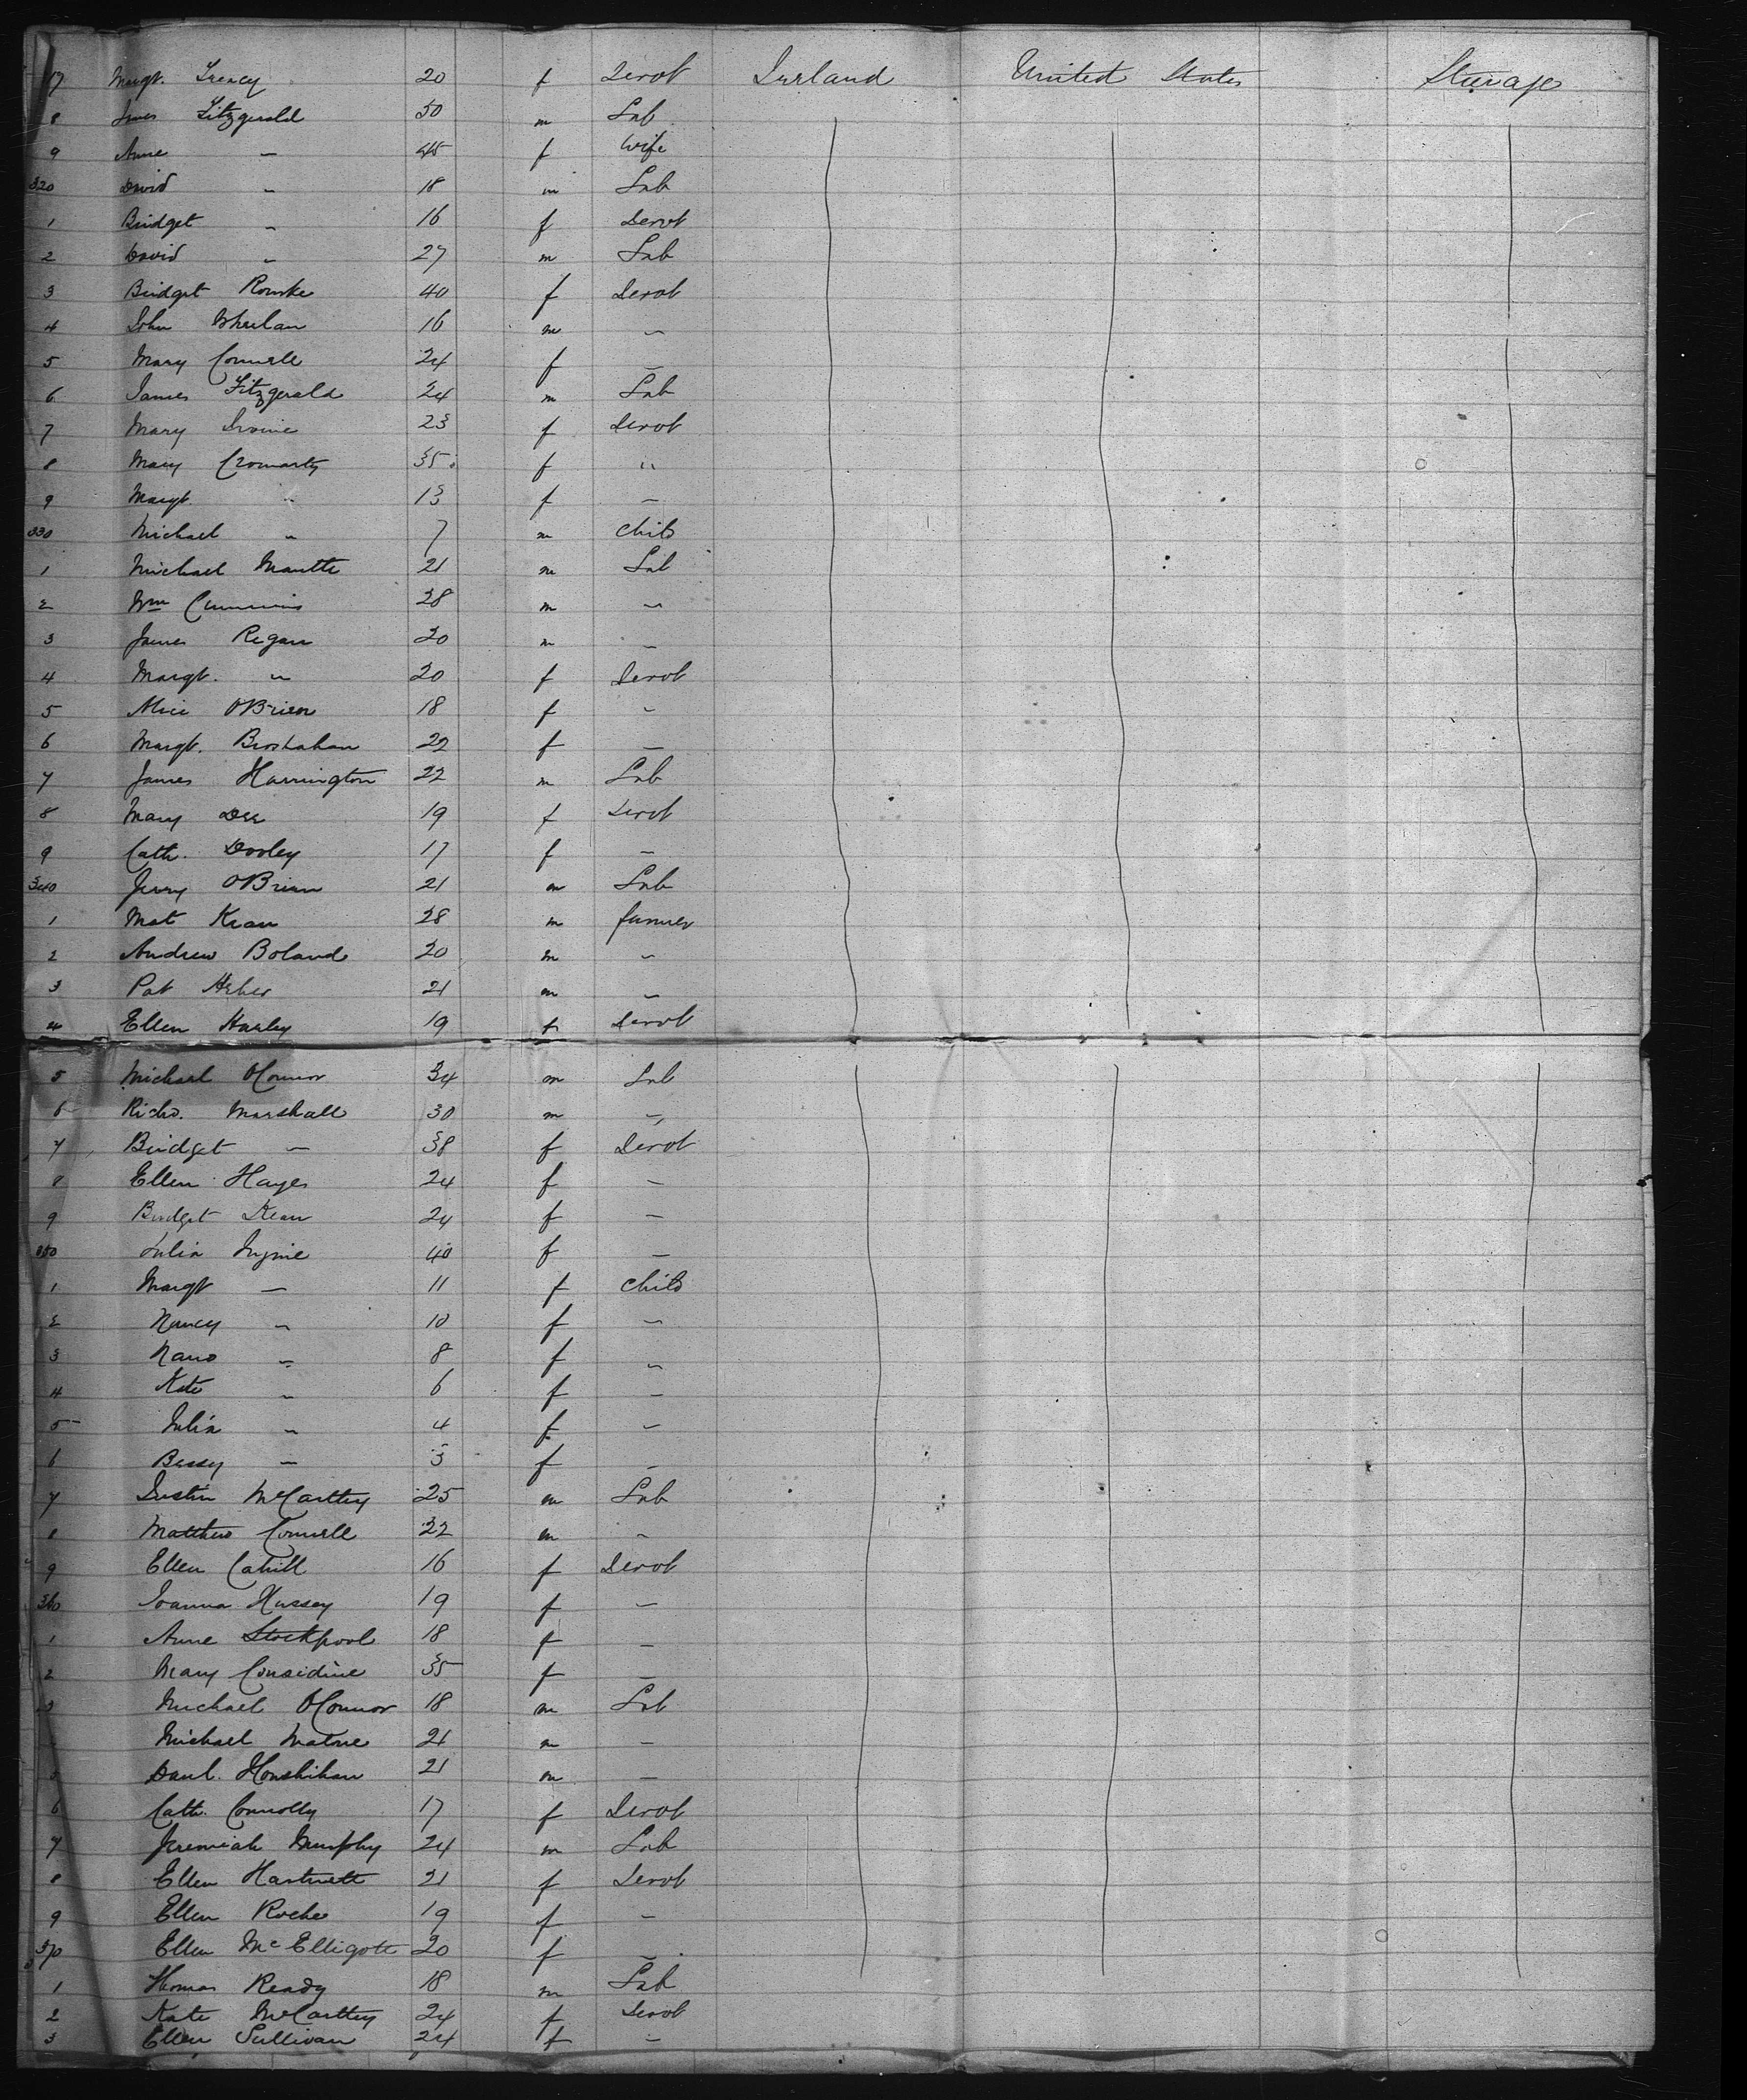 17 Margt. Treacy 20 f Servt Ireland United States Steerage
8 James Fitzgerald 50 m Lab
9 Anne " 45 f Wife
320 David " 18 m Lab
1 Bridget " 16 f Servt
2 David " 27 m Lab
3 Bridget Rourke 40 f Servt
4 John Whelan 16 m "
5 Mary Connell 24 f "
6 James Fitzgerald 24 m Lab
7 Mary Irvine 23 f Servt
8 Mary Cromarty 35 f "
9 Margt. " 13 f "
330 Michael " 7 m Child
1 Michael 21 m Lab
2 Wm Cummins 28 m "
3 James Regan 20 m "
4 Margt. " 20 f Servt
5 Alice OBrien 18 f "
6 Margt. Broshahan 22 f "
7 James Harrington 22 m Lab
8 Mary Dee 19 f Servt
9 Cath. Dooley 17 f "
340 Jerry OBrien 21 m Lab
1 Mat Kean 28 m farmer
2 Andrew Boland 20 m "
3 Pat 21 m "
4 Ellen Hurley 19 f Servt
5 Michael OConnor 34 m Lab
6 Richd. Marshall 30 m "
7 Bridget " 38 f Servt
8 Ellen Hayes 24 f "
9 Bridget Kean 24 f "
350 Julia 40 f "
1 Margt " 11 f Child
2 Nancy " 10 f "
3 Nano " 8 f "
4 Kate " 6 f "
5 Julia " 4 f "
6 Bessy " 3 f "
7 Justin McCarthy 25 m Lab
8 Matthew Connell 22 m "
9 Ellen Cahill 16 f Servt
360 Joanna Hussey 19 f "
1 Anne Stockpool 18 f "
2 Mary Considine 35 f "
3 Michael OConnor 18 m Lab
Michael Malone 21 m "
5 Danl. Houshihan 21 m "
6 Cath. Connolly 17 f Servt
7 Jeremiah Murphy 24 m Lab
8 Ellen Hartnett 21 f Servt
9 Ellen Roche 19 f "
370 Ellen McElligott 20 f "
1 Thomas Ready 18 m Lab
2 Kate McCarthy 24 f Servt
3 Ellen Sullivan 24 f "